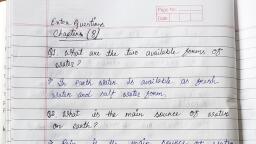 Page No.
Date
Extra Questions
Chapter (8)
Q1 What are the two available forms of
water?
→ In Earth water is available as fresh
water and salt water form.
Q2 What is the main source of water
on earth?
→ Rain is the main source of water